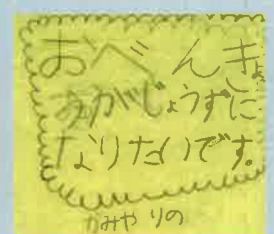 おべんきょ
うがじょうずに
なりたいです。
かみやりの